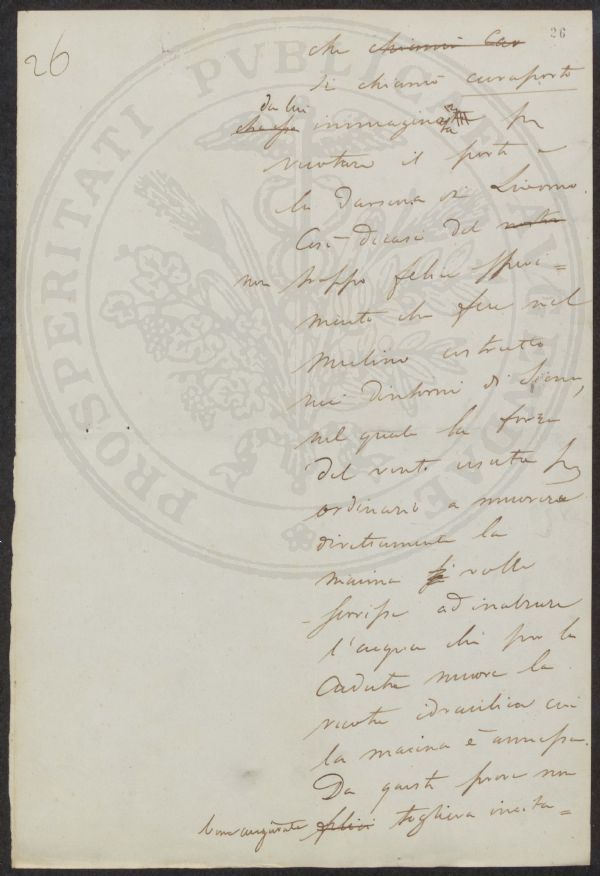 26
26
che ~~chiamò Cav~~
si chiamò curaporto
da lui
~~che fu~~ immaginata per
vuotare il porto e
la Darsena di Livorno.
Così dicasi del ~~nostro~~
non troppo felice speri=
mento che fece nel
mulino costrutto
nei dintorni di Siena,
nel quale la forza
del vento usata per
ordinario a muovere
direttamente la
macina si volle
servisse ad inalzare
l'acqua che per la
caduta muove la
ruota idraulica cui
la macina è annessa.
Da queste prove non
bene augurate ~~felici~~ toglieva incita=
PROSPERITATI PUBLICAE AUGENDAE